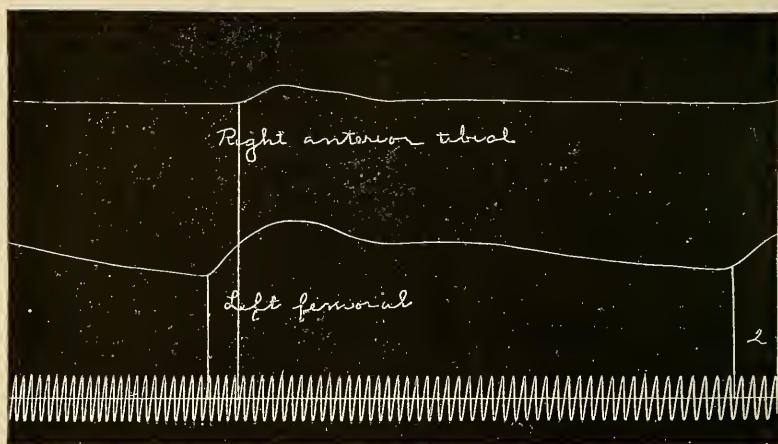 Right anterior tibial
Left femoral
2